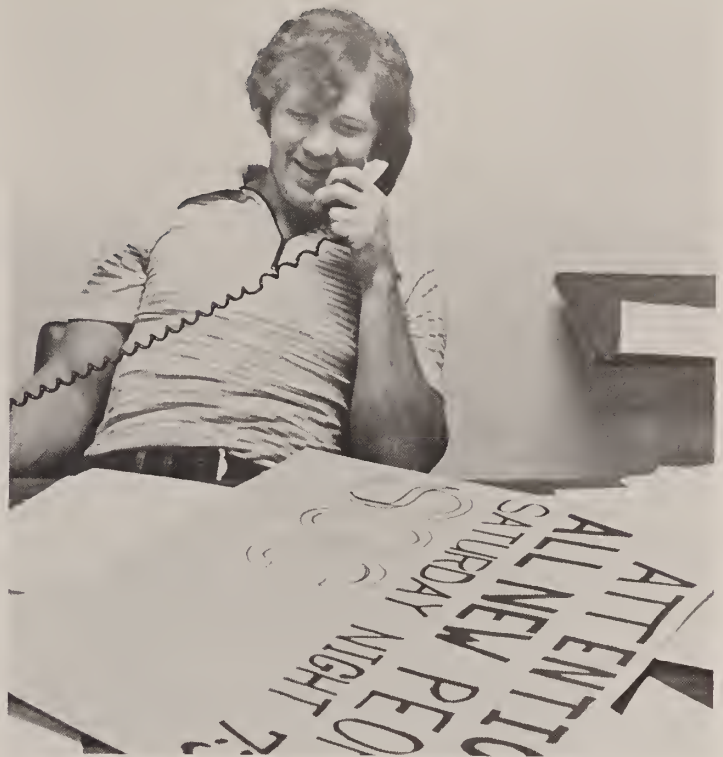 ATTENTIO
ALL NEW PEO
SATURDAY NIGHT
7: